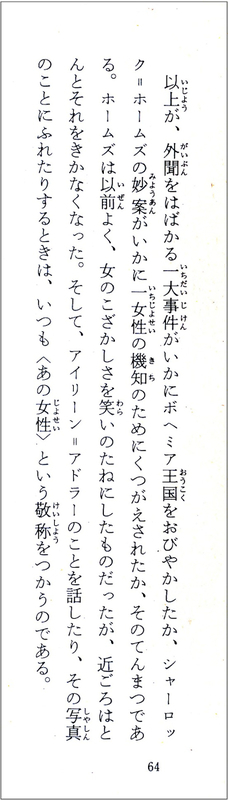 以上が、外聞をはばかる一大事件がいかにボヘミア王国をおびやかしたか、シャーロッ
ク＝ホームズの妙案がいかに一女性の機知のためにくつがえされたか、そのてんまつであ
る。ホームズは以前よく、女のこざかしさを笑いのたねにしたものだったが、近ごろはと
んとそれをきかなくなった。そして、アイリーン＝アドラーのことを話したり、その写真
のことにふれたりするときは、いつも〈あの女性〉という敬称をつかうのである。
64